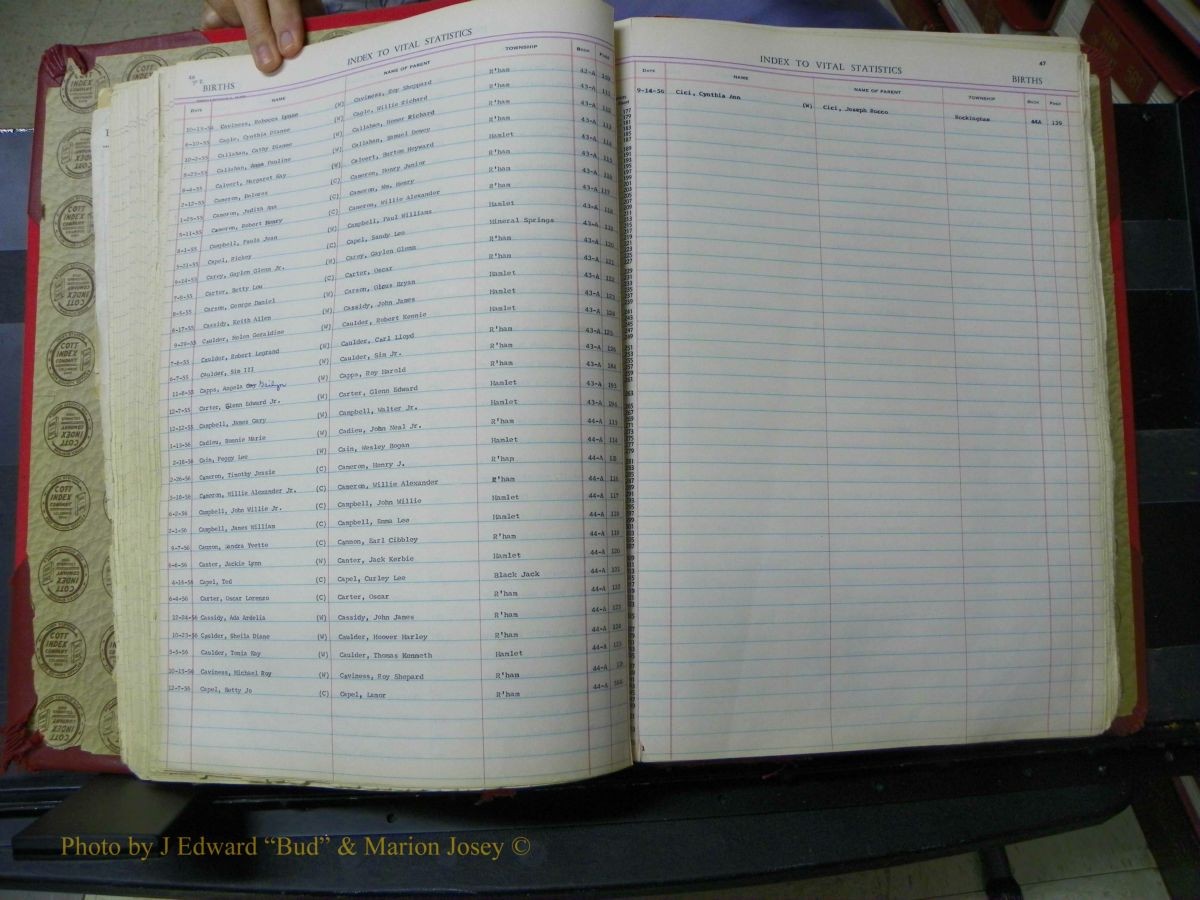 INDEX TO VITAL STATISTICS
BIRTHS
NAME NAME OF PARENT TOWNSHIP BOOK PAGE
DATE
Caviness, Rebecca Lynne (W) Caviness, Roy Sheppard R'ham 42-A
8-10-55 Cagle, Cynthia Diane (W) Cagle, Willie Richard R'ham 43-A 111
10-2-55 Callahan, Cathy Dianne (W) Callahan, Homer Richard R'ham 43-A
Callahan, Pauline (W) Callahan, Samuel Dewey Hamlet 43-A 113
Calvert, Margaret Kay (W) Calvert, Burton Heyward R'ham 43-A 114
2-12-55 Cameron, Dolores (C) Cameron, Henry Junior R'ham 43-A 115
1-25-55 Cameron, Judith Ann (C) Cameron, Wm. Henry R'ham 43-A 116
5-11-55 Cameron, Robert Henry (C) Cameron, Willie Alexander R'ham 43-A 117
8-1-55 Campbell, Paula Jean (W) Campbell, Paul Williams Hamlet 43-A 118
Capel, Rickey (C) Capel, Sandy Lee Mineral Springs 43-A 119
6-24-55 Carey, Gaylen Glenn Jr. (W) Carey, Gaylen Glenn R'ham 43-A 120
7-8-55 Carter, Betty Lou (C) Carter, Oscar R'ham 43-A 121
8-5-55 Carson, George Daniel (W) Carson, Bryan Hamlet 43-A 122
6-17-55 Cassidy, Keith Allen (W) Cassidy, John James Hamlet 43-A 123
9-29-55 Caulder, Helen Geraldine (W) Caulder, Robert Kennie Hamlet 43-A 124
7-4-55 Caulder, Robert Legrand (W) Caulder, Carl Lloyd R'ham 43-A 125
Caulder, Sim III (W) Caulder, Sim Jr. R'ham 43-A 126
11-8-55 Capps, Angela (W) Capps, Roy Harold R'ham 43-A
12-7-55 Carter, Glenn Edward Jr. (W) Carter, Glenn Edward Hamlet 43-A 193
12-12-55 Campbell, James Gary (W) Campbell, Walter Jr. Hamlet 43-A
1-13-56 Cadieu, Bonnie Marie (W) Cadieu, John Neal Jr. R'ham 44-A 113
2-18-56 Cain, Peggy Lee (W) Cain, Wesley Hogan Hamlet 44-A 114
2-26-56 Cameron, Timothy Jessie (C) Cameron, Henry J. R'ham 44-A
3-18-56 Cameron, Willie Alexander Jr. (C) Cameron, Willie Alexander R'ham 44-A 116
6-2-56 Campbell, John Willie Jr. (C) Campbell, John Willie Hamlet 44-A 117
2-1-56 Campbell, James William (C) Campbell, Emma Lee Hamlet 44-A 118
9-7-56 Cannon, Yvette (C) Cannon, Earl Cibbley R'ham 44-A 119
Canter, Jackie Lynn (W) Canter, Jack Kerbie Hamlet 44-A 120
4-16-56 Capel, Ted (C) Capel, Curley Lee Black Jack 44-A 121
6-4-56 Carter, Oscar Lorenzo (C) Carter, Oscar R'ham 44-A 122
12-24-56 Cassidy, Ada Ardelia (W) Cassidy, John James R'ham 44-A 123
10-23-56 Caulder, Sheila Diane (W) Caulder, Hoover Harley R'ham 44-A 124
5-5-56 Caulder, Tonia Kay (W) Caulder, Thomas Kenneth Hamlet 44-A 125
10-15-56 Caviness, Michael Roy (W) Caviness, Roy Shepard R'ham 44-A
12-7-56 Capel, Betty Jo (C) Capel, Lanor R'ham 44-A
INDEX TO VITAL STATISTICS 47
BIRTHS
DATE NAME NAME OF PARENT TOWNSHIP BOOK PAGE
9-14-56 Cici, Cynthia Ann (W) Cici, Joseph Rocco Rockingham 44A 129
COTT INDEX COMPANY
Photo by J Edward “Bud” & Marion Josey ©